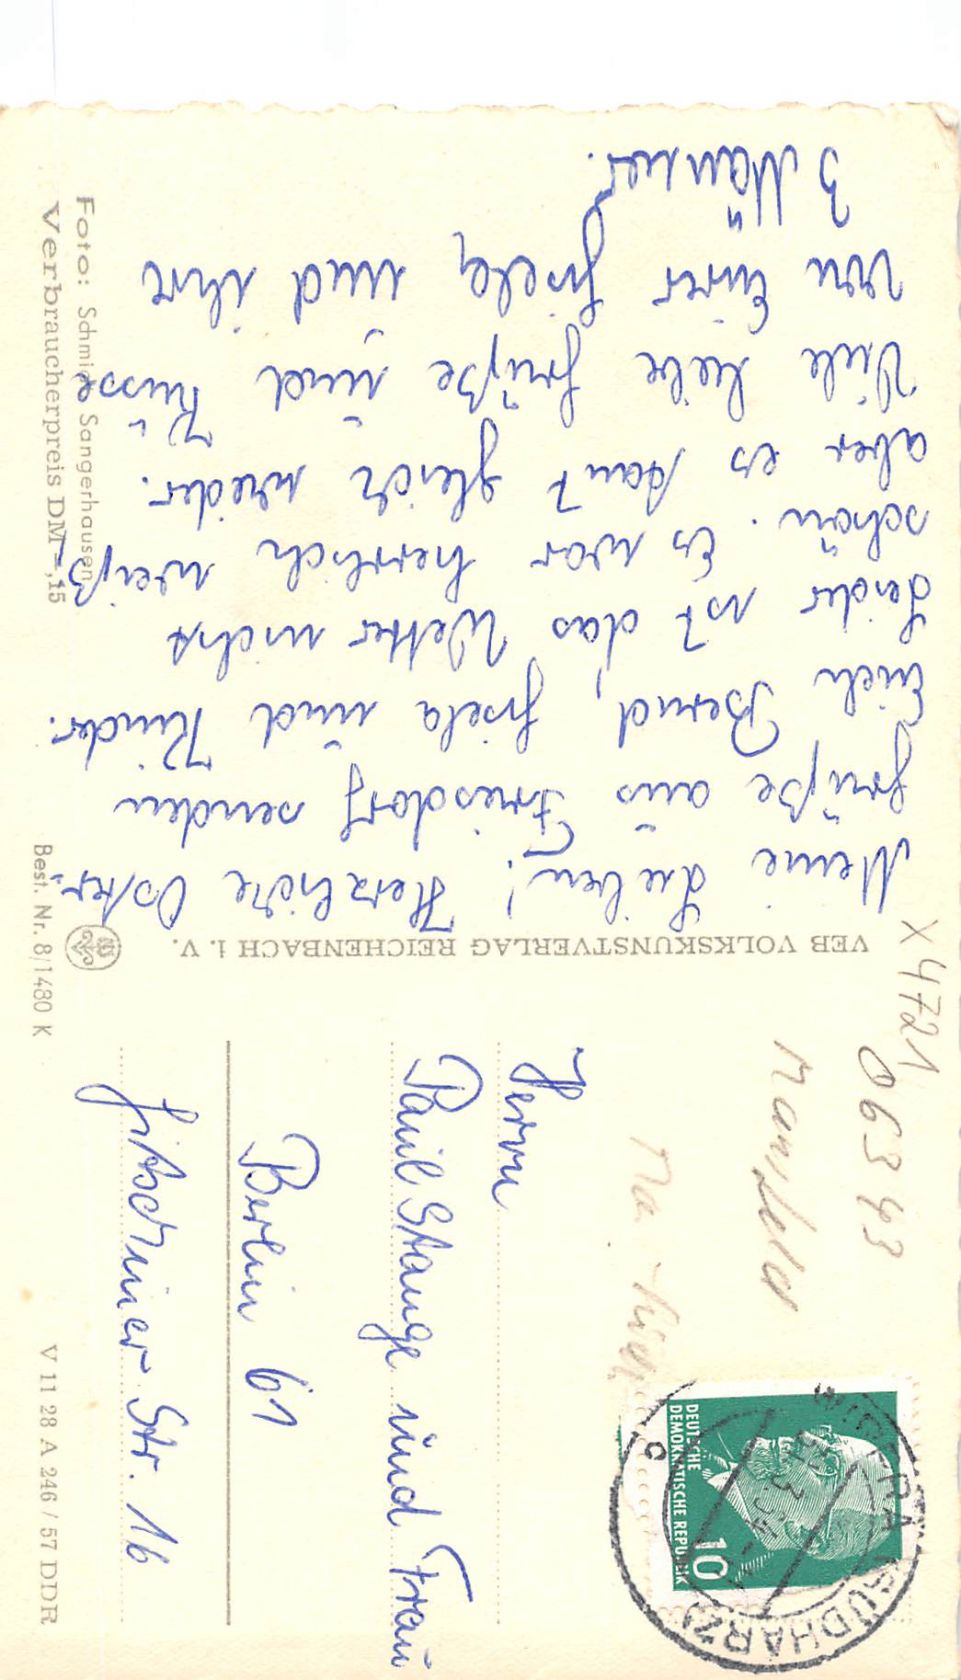 Meine Lieben! Herzliche Oster-
grüße aus Friesdorf senden
Euch Bernd, Gisela und Kinder.
Leider ist das Wetter nicht
schön. Es war herrlich weiß,
aber es taut gleich wieder.
Viele liebe Grüße und Küsse
von Eurer Gisela und ihre
3 Männer.
Foto: Schmidt, Sangerhausen
Verbraucherpreis DM -,15
VEB VOLKSKUNSTVERLAG REICHENBACH i. V.
Best. Nr. 8/1480 K
X 4721
06343
Mansfeld
DEUTSCHE
DEMOKRATISCHE REPUBLIK
10
WIPPRA (SÜDHARZ)
Herrn
Paul Stange und Frau
Berlin 61
Gitschiner Str. 16
V 11 28 A 246 / 57 DDR